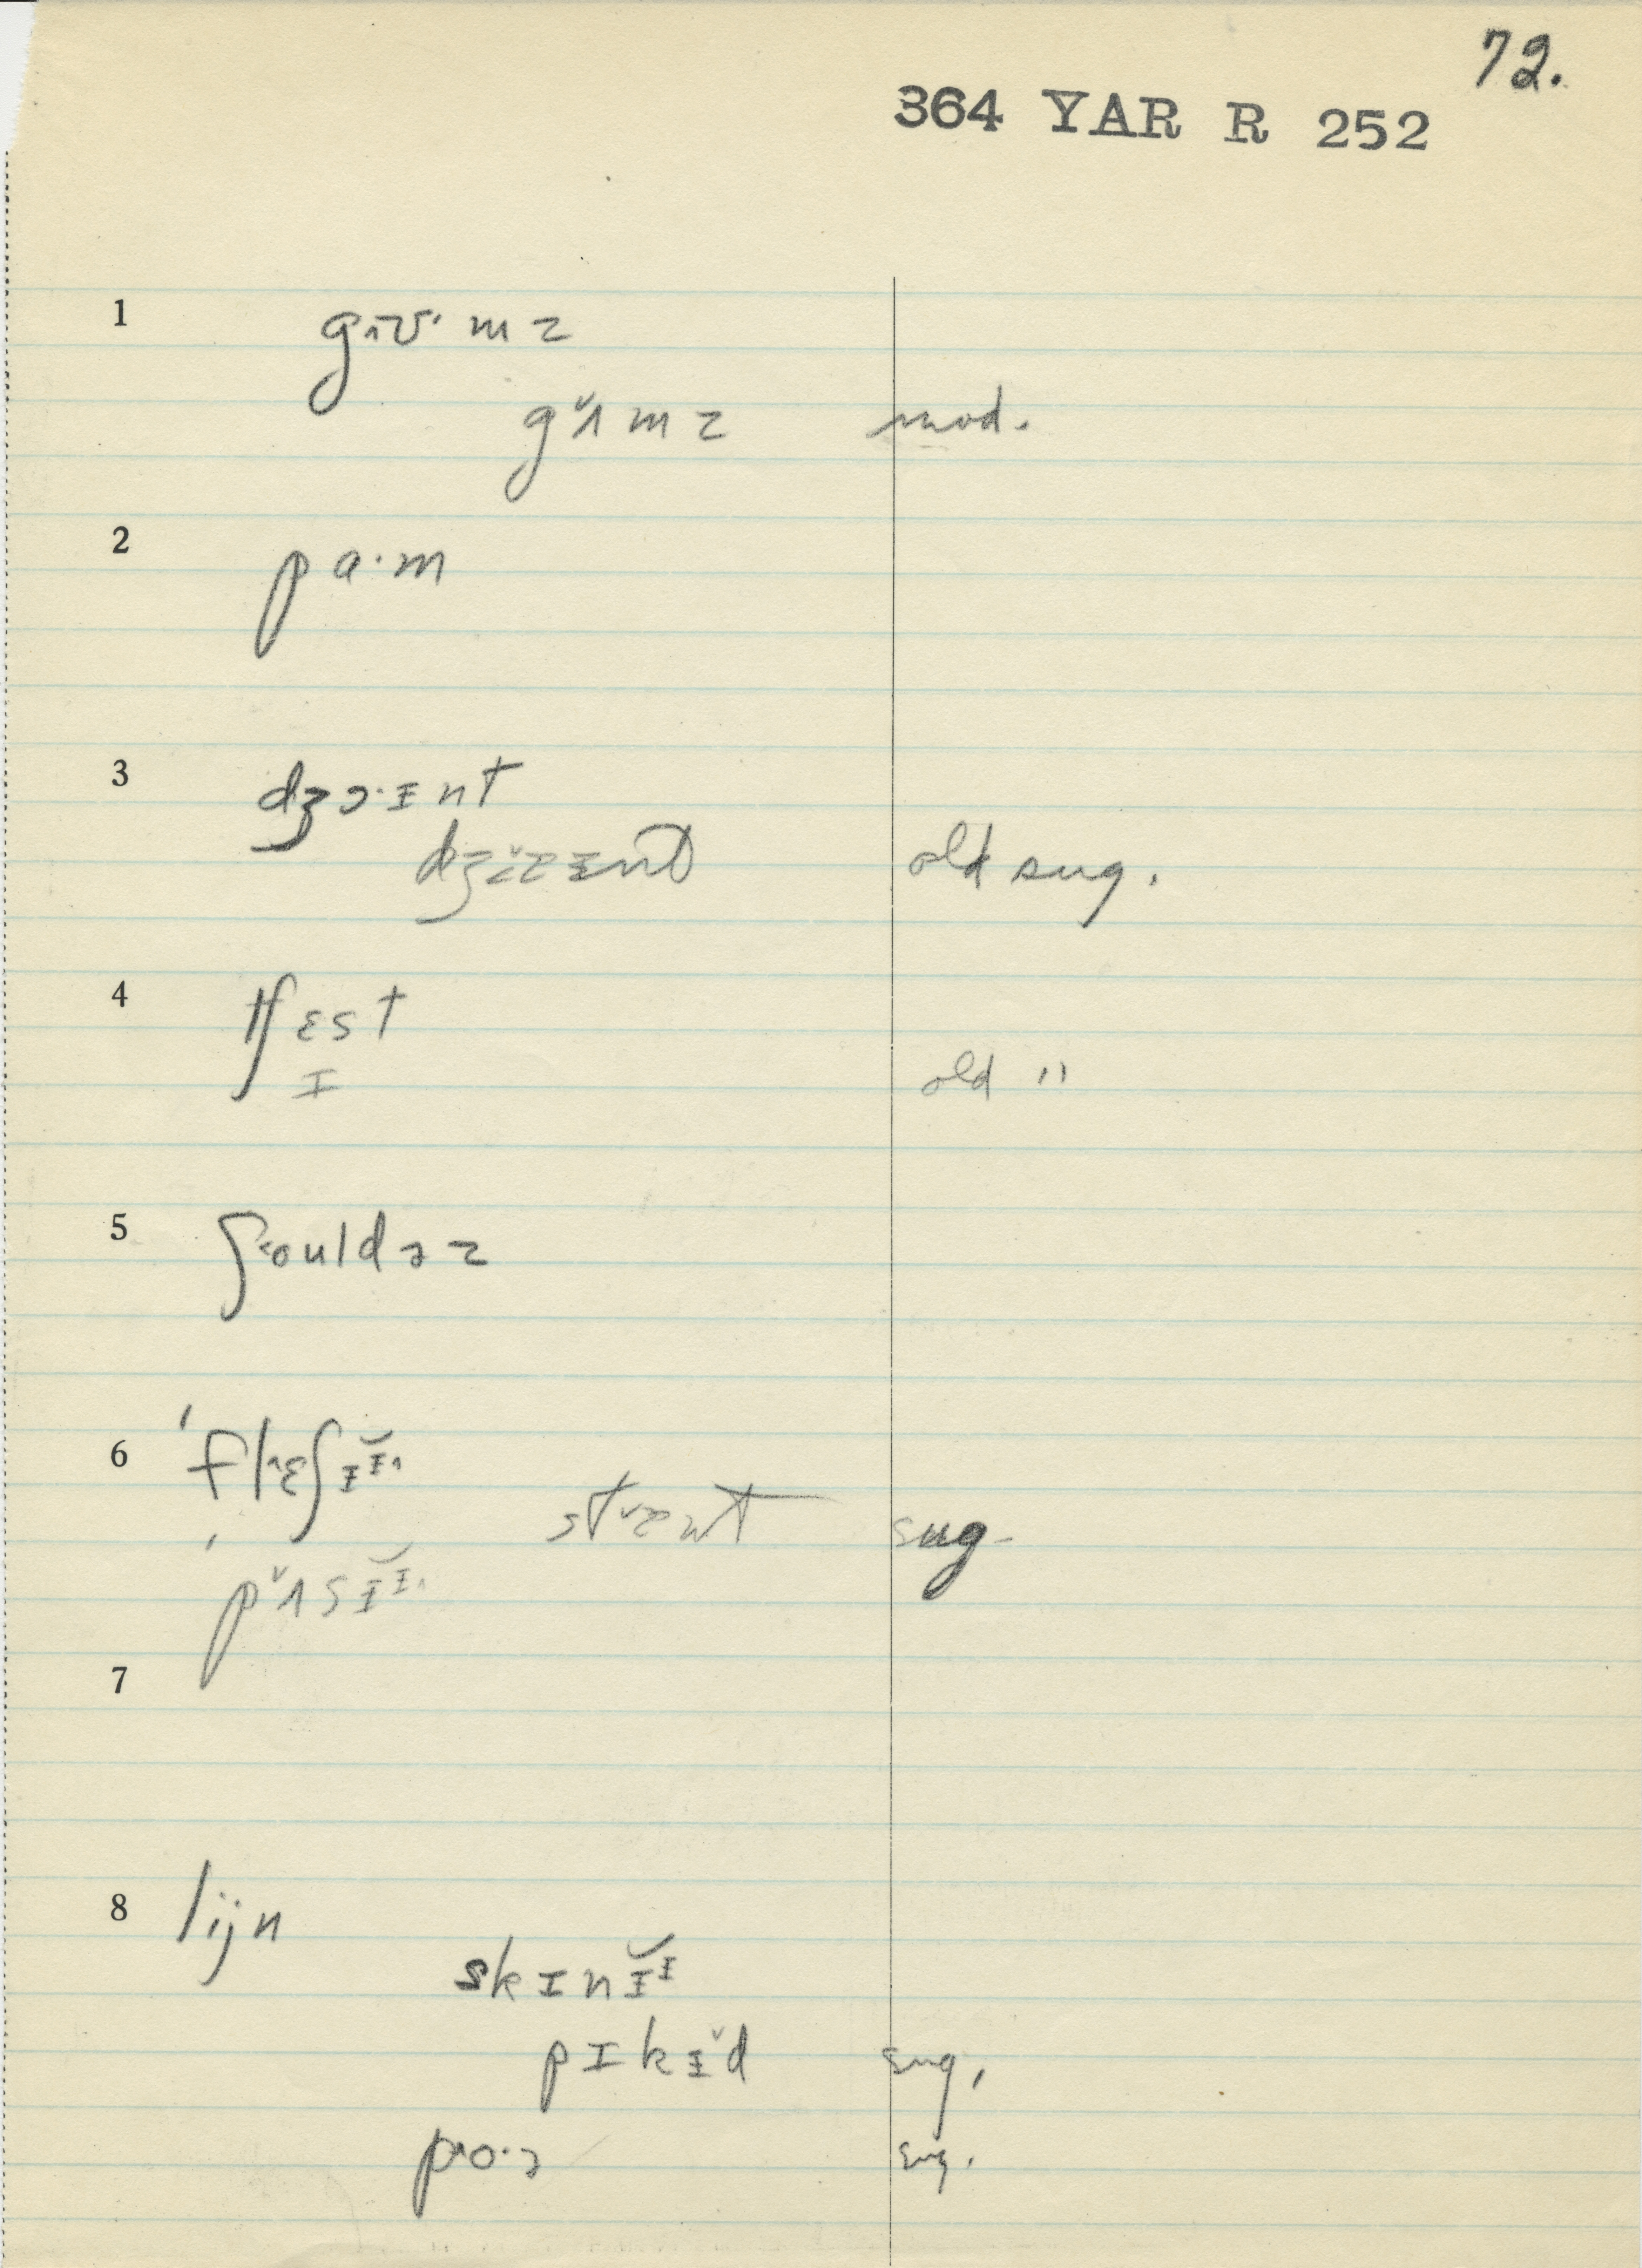 72.
364 YAR R 252
1 gʌʊ· m z
gʌ̆ m z mod.
2 p a· m
3 dʒɔ·ɪnt
old sug.
4 tʃɛst
ɪ old "
5 ʃouldəz
6 'flɛʃɪɪ̆
staut sug.
'pʌ̆sɪɪ̆
7
8 lijn
skɪnɪ̆ɪ
pɪkɪ̆d sug.
po·ə sug.